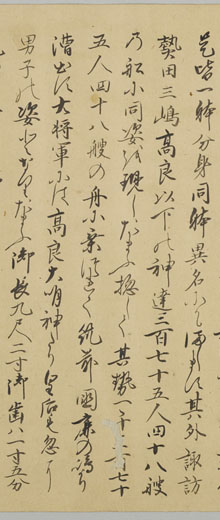 是皆一躰分身同躰異名にてまします其外諏訪
熱田三嶋高良以下の神達三百七十五人四十八艘
の舩に同姿を現したまふ惣して其勢一千三百七十
五人四十八艘の舟に乗給て筑前國
漕出す大将軍には高良大明神たり皇后も忽に
男子の姿とかはりたまふ御長九尺二寸御歯一寸五分